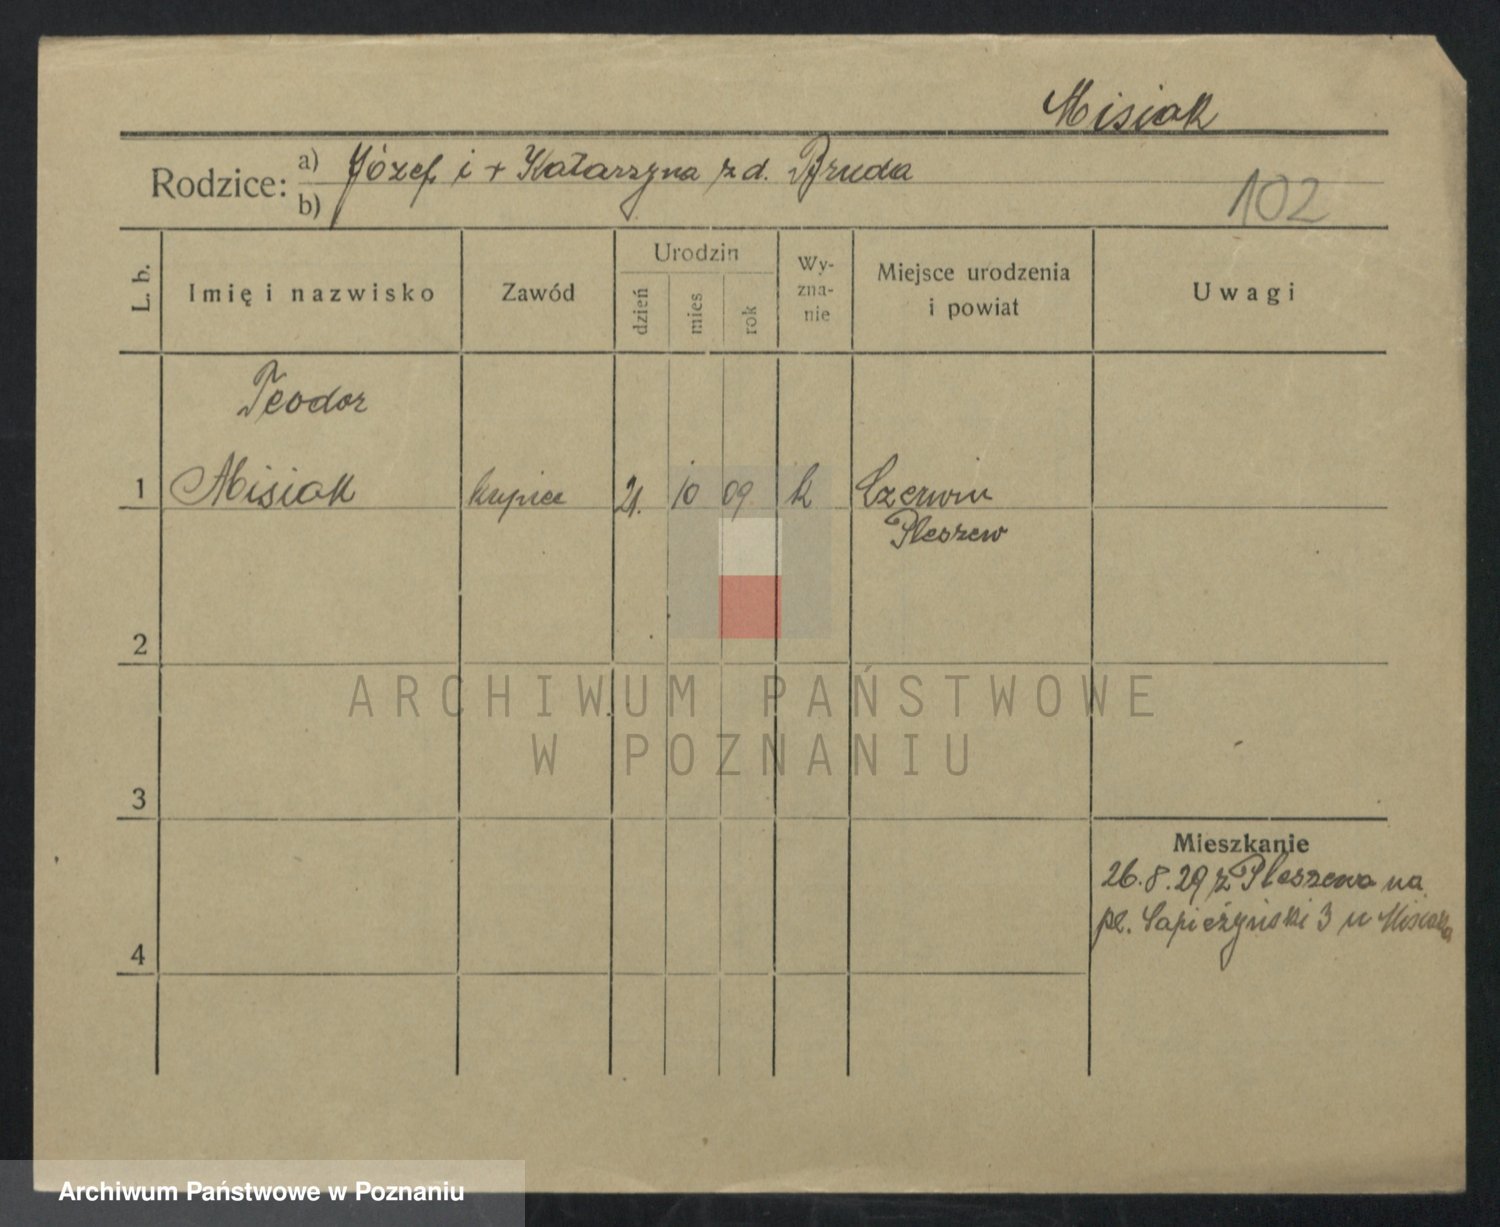 Misiak
Rodzice: a) Józef i + Katarzyna z d. Bruda
b)
102
L. b.
Imię i nazwisko
Zawód
Urodzin
dzień
mies
rok
Wy-
zna-
nie
Miejsce urodzenia
i powiat
Uwagi
Teodor
1 Misiak kupiec 21. 10 09 k Czermin
Pleszew
2
3
4
Mieszkanie
26.8.29 z Pleszewa na
pl. Sapieżyński 3 u Misiaka
ARCHIWUM PAŃSTWOWE
W POZNANIU
Archiwum Państwowe w Poznaniu